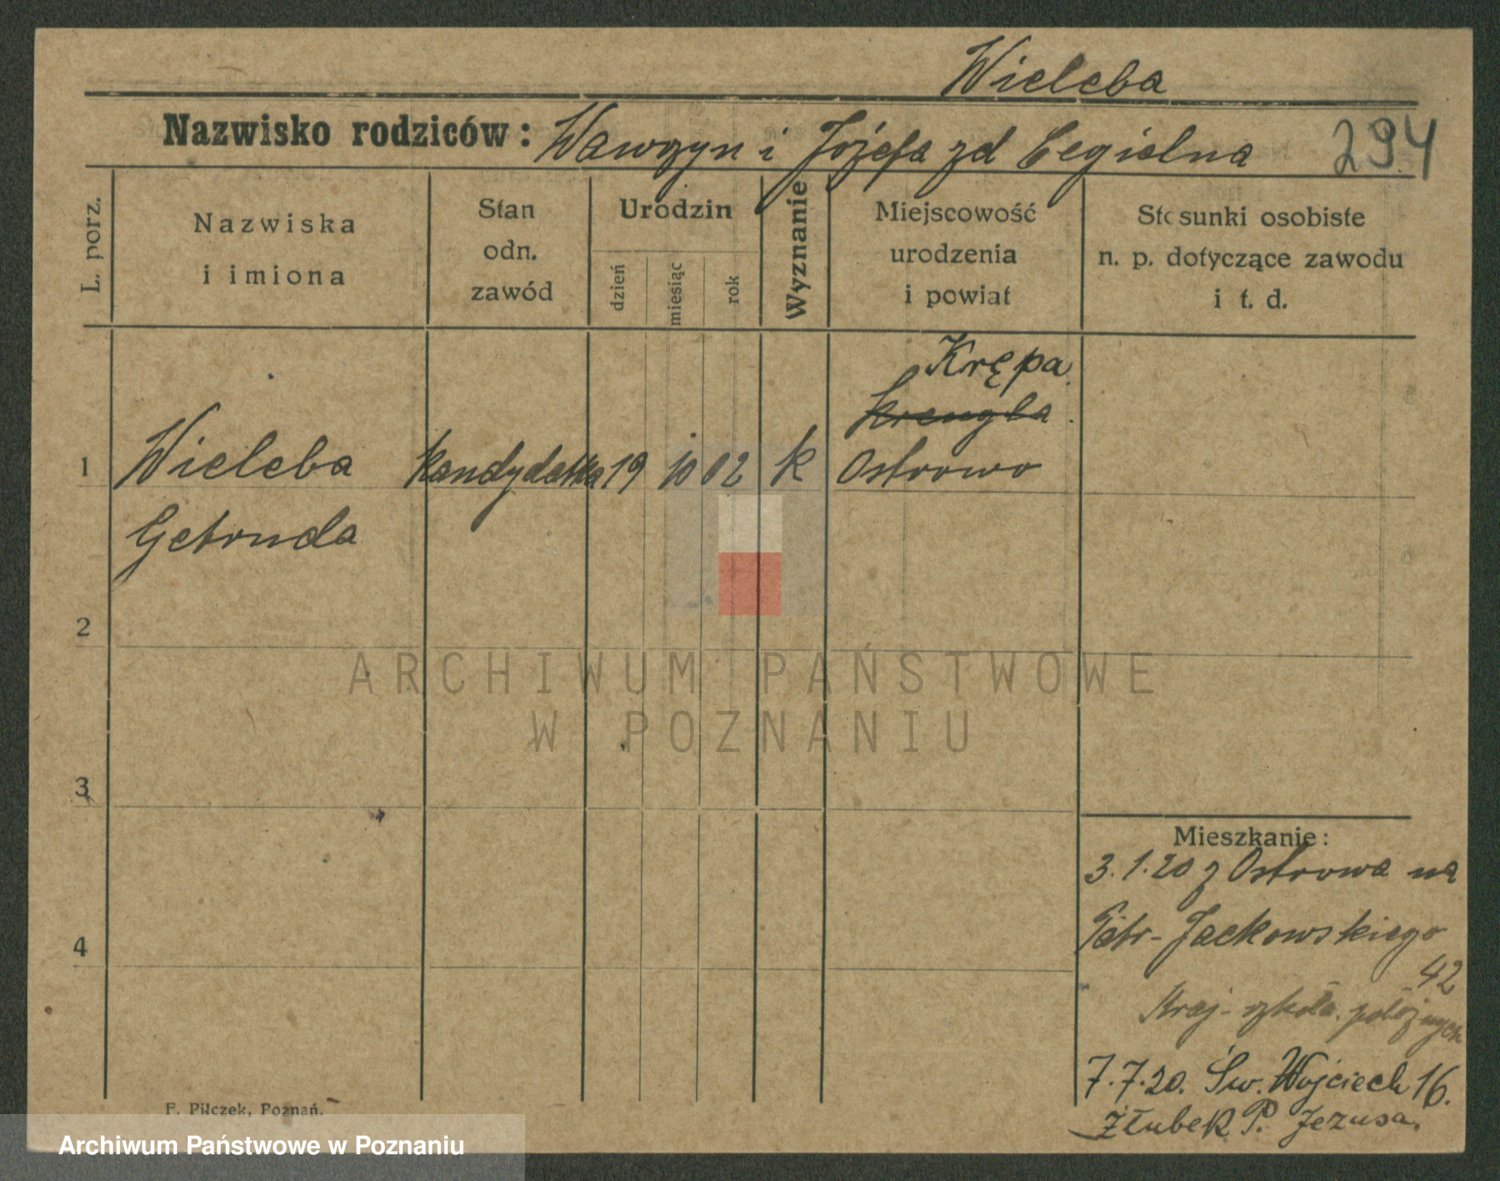 Wieleba
Nazwisko rodziców: Wawrzyn i Józefa zd Cegielna 294
L. porz.
Nazwiska
i imiona
Stan
odn.
zawód
Urodzin
dzień
miesiąc
rok
Wyznanie
Miejscowość
urodzenia
i powiat
Stosunki osobiste
n. p. dotyczące zawodu
i t. d.
Krępa
1 Wieleba kandydatka 19 10 02 k Ostrowo
Getruda
2
3
4
Mieszkanie:
3.1.20 z Ostrowa na
Piotr-Jackowskiego
42
Kraj-szkoła położnych
7.7.20. Św. Wojciech 16.
Żłubek P. Jezusa.
F. Pilczek, Poznań.
ARCHIWUM PAŃSTWOWE
W POZNANIU
Archiwum Państwowe w Poznaniu